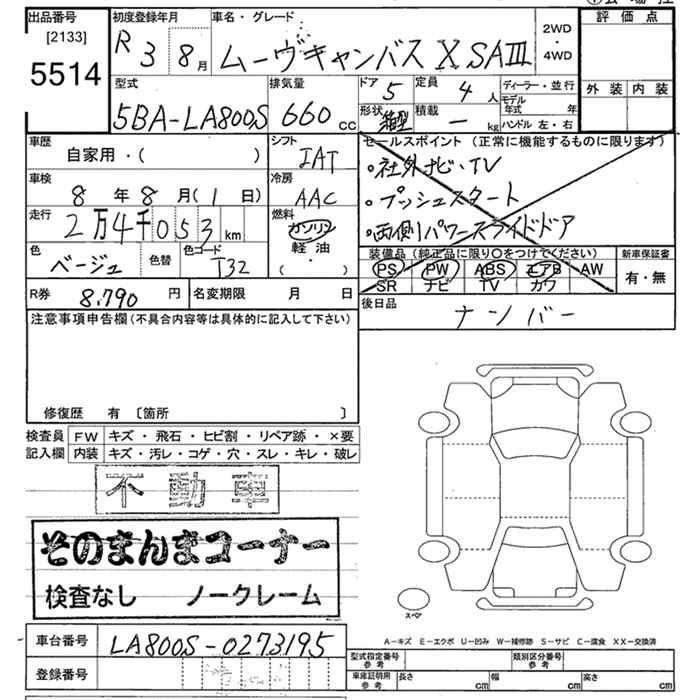 出品番号 初度登録年月 車名・グレード 評価点
[2133] R 3 8月 ムーヴキャンバス X SAⅢ 2WD・4WD
5514
型式 排気量 ドア 5 定員 4人 ディーラー・並行 外装 内装
5BA-LA800S 660cc 形状 箱型 積載 ー kg モデル年式 年
ハンドル 左・右
車歴 自家用・( ) シフト IAT セールスポイント (正常に機能するものに限ります)
・社外ナビ・TV
車検 8年8月(1日) 冷房 AAC ・プッシュスタート
走行 2万4千053km 燃料 ガソリン 軽油・( ・ ) ・両側パワースライドドア
色 ベージュ 色替 色コード T32 装備品 (純正品に限り〇をつけてください) 新車保証書
PS PW ABS エアB AW 有・無
SR ナビ TV カワ
R券 8,790円 名変期限 月 日 後日品
ナンバー
注意事項申告欄(不具合内容等は具体的に記入して下さい)
修復歴 有 〔箇所 〕
検査員 FW キズ・飛石・ヒビ割・リペア跡・×要
記入欄 内装 キズ・汚レ・コゲ・穴・スレ・キレ・破レ
不動車
そのまんまコーナー
検査なし ノークレーム
スペア
A−キズ E−エクボ U−凹み W−補修跡 S−サビ C−腐食 XX−交換済
車台番号 LA800S-0273195
型式指定番号 参考 類別区分番号 参考
登録番号 車庫証明用 参考 長さ cm 幅 cm 高さ cm